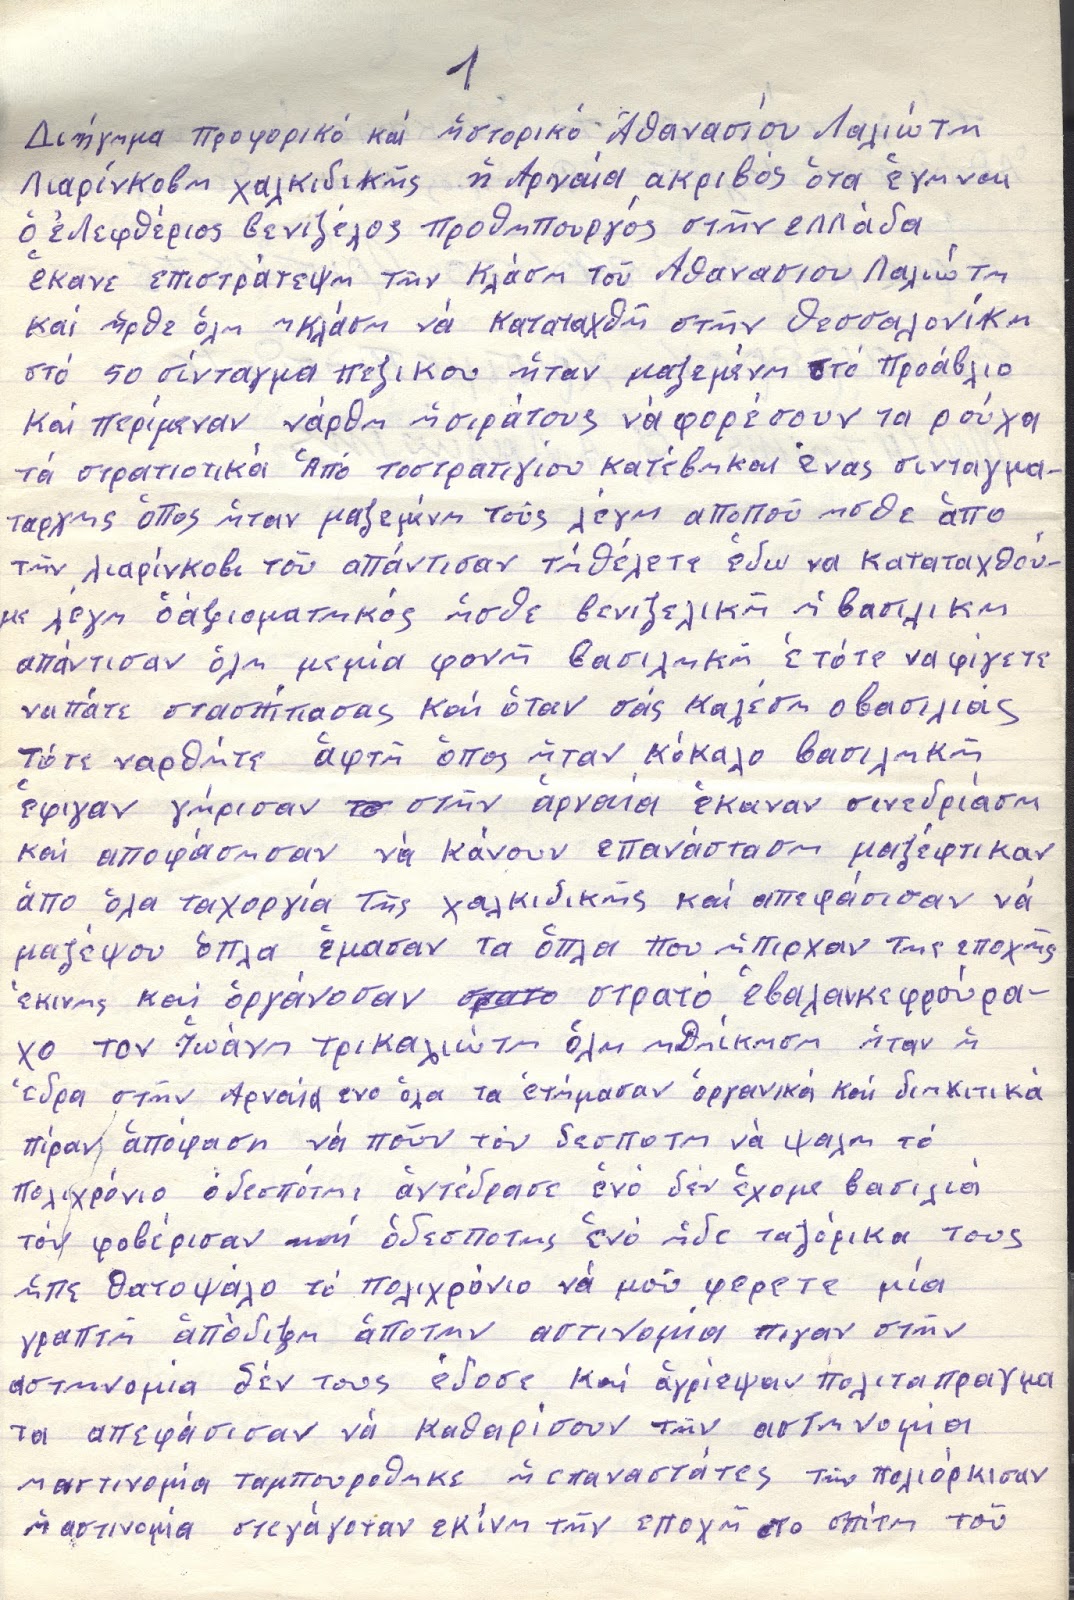 1
Διήγημα προφορικό και ἡστορικό Ἀθανασίου Λαλιώτη
Λιαρίνκοβη χαλκιδικῆς ἡ Αρναία ακριβός ότα ἔγηναι
ὁ ἐλεφθέριος βενιζέλος προθηπουργός στῆν ελλάδα
ἔκανε επιστράτεψη τῆν κλάση τοῦ Ἀθανασιου Λαλιώτη
και ἤρθε ὅλη η κλάση νά καταταχθῆ στῆν θεσσαλονίκη
στό 50 σίνταγμα πεζικου ἤταν μαζεμένη στό προάβλιο
και περίμεναν νάρθη ἡσιράτους νάφορέσουν τα ρούχα
τά στρατιοτικά Ἀπό τοστρατιγίου κατέβηκαι ἕνας σινταγμα-
ταρχης ὅπος ἤταν μαζεμένη τοῦς λέγη αποποῦ ησθε ἀπο
τῆν λιαρίνκοβι τοῦ απάντισαν τήθέλετε ἐδω να καταταχθού-
με λέγη ὁάξιοματηκός ἤσθε βενιζελικῆ ἡ βασιλικη
απάντισαν ὅλη μεμία φονῆ βασιληκῆ ἐ τότε ναφίγετε
ναπάτε στασπίτιασας και ὅταν σάς καλέση οβασιλιάς
τότε ναρθῆτε ἀφτῆ ὅπος ἤταν κόκαλο βασιληκῆ
ἔφιγαν γήρισαν στῆν ἀρναία ἔκαναν σινεδρίαση
και αποφάσησαν νά κάνουν επανάσταση μαζέφτικαν
ἀπο ὅλα ταχοργία τῆς χαλκιδικῆς και απεφάσισαν νά
μαζέψου ὅπλα ἔμασαν τα ὅπλα που ἤπιρχαν της εποχῆς
ἐκινης και ὀργάνοσαν στρατό ἐβαλανκεφρούρα-
χο τον Ἰωάνη τρικαλιώτη ὅλη ηδηίκηση ἤταν ἡ
ἐδρα στῆν Αρναία ενο ὅλα τα ἐτήμασαν ὀργανικά και διηκιτικά
πίραν ἀπόφαση νά ποῦν τόν δεσποτη νά ψαλη τό
πολιχρόνιο ὁδεσπότης ἀντέδρασε ἐνό δέν ἔχομε βασιλιά
τόν φοβέρισαν και ὁδεσποτης ἐνό ἤδε ταζόρικα τους
ἤπε θατοψάλο τό πολιχρόνιο νά μοῦ φερετε μία
γραπτῆ ἀπόδιξη ἀποτην αστινομία πιγαν στῆν
αστηνομία δέν τους ἔδοσε και ἀγρίεψαν πολιταπραγμα
τα απεφάσισαν νά καθαρίσουν τῆν αστηνομία
η αστινομία ταμπουροθηκε ἡ επαναστάτες τῆν πολιόρκισαν
ἡ αστινομία στεγάγοταν εκίνη τῆν εποχῆ στο σπίτη τοῦ